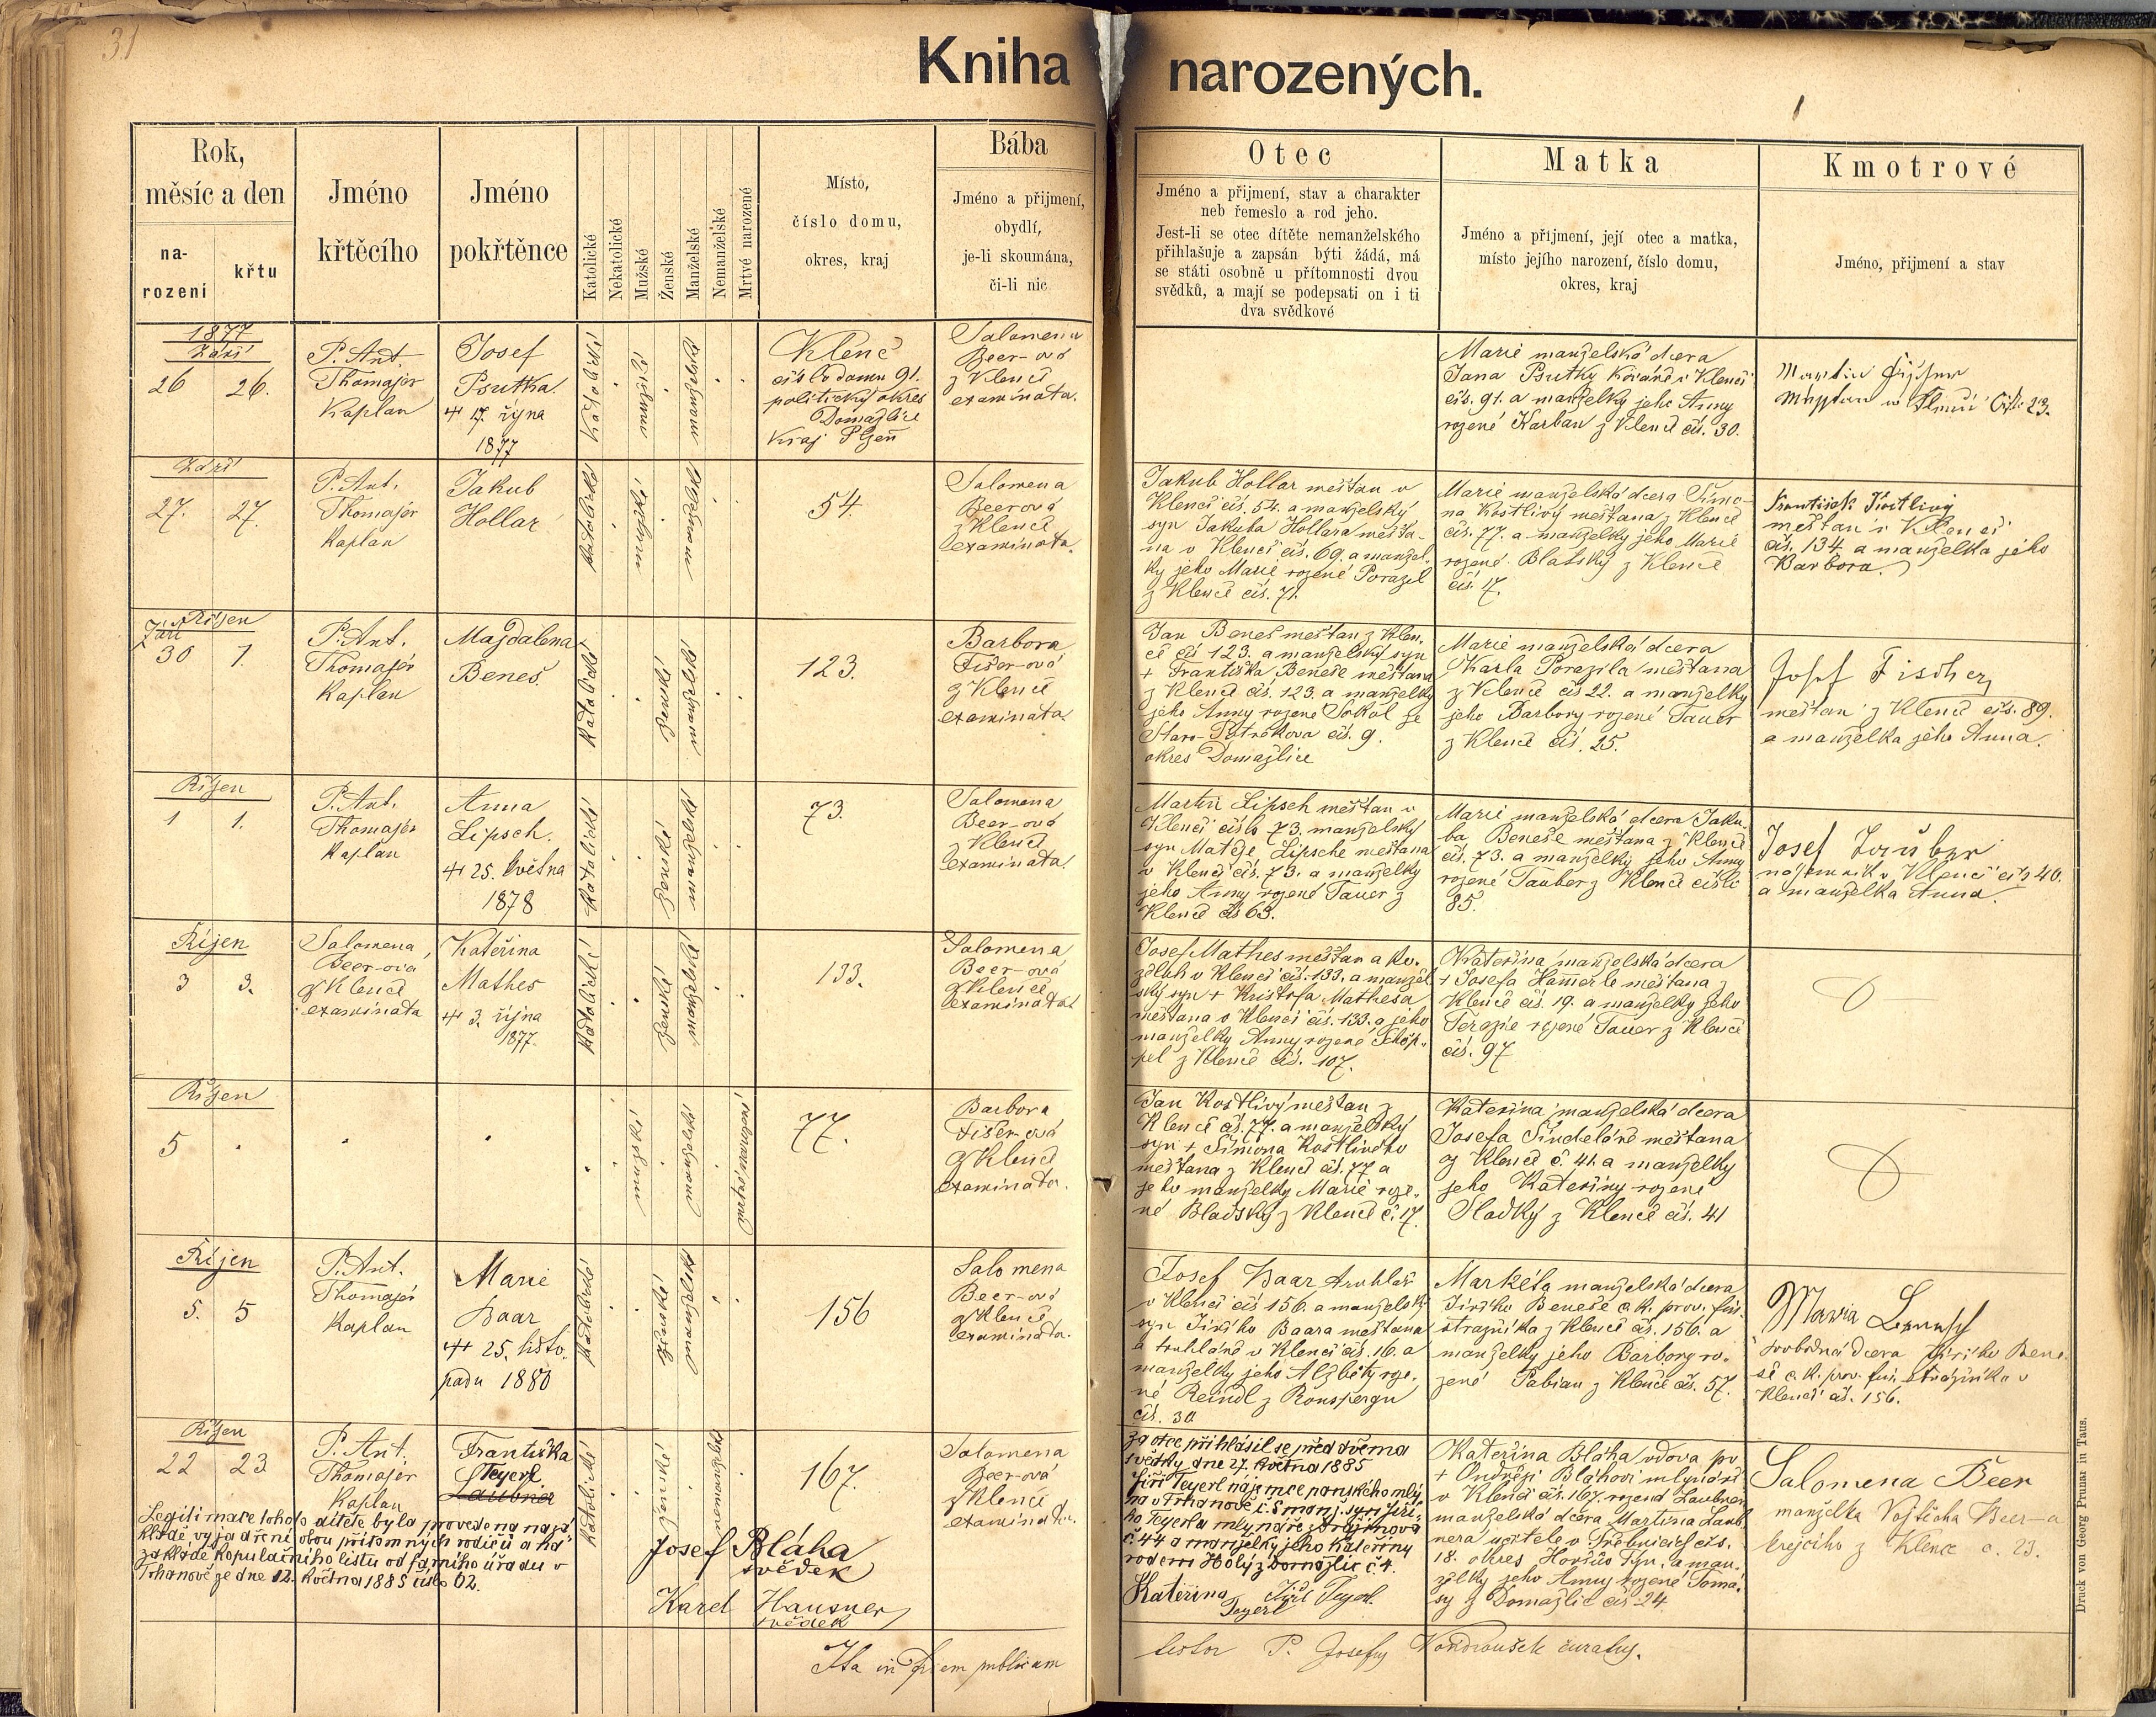 31
Kniha narozených.
1
Rok,
měsíc a den
na-
rozeni
křtu
Jméno
křtěcího
Jméno
pokřtěnce
Katolické
Nekatolické
Mužské
Ženské
Manželské
Nemanželské
Mrtvé narozené
Místo,
číslo domu,
okres, kraj
Bába
Jméno a přijmení,
obydlí,
je-li skoumána,
či-li nic
Otec
Jméno a přijmení, stav a charakter
neb řemeslo a rod jeho.
Jest-li se otec dítěte nemanželského
přihlašuje a zapsán býti žádá, má
se státi osobně u přítomnosti dvou
svědků, a mají se podepsati on i ti
dva svědkové
Matka
Jméno a přijmení, její otec a matka,
místo jejího narození, číslo domu,
okres, kraj
Kmotrové
Jméno, přijmení a stav
1877
Září
26 26.
P. Ant.
Thomajer
Kaplan
Josef
Psutka.
17. října
1877
Katolické
manželské
Klenč
číslo domu 91.
politický okres
Domažlice
Kraj Plzeň
Salomena
Beer-ová
z Klenče
examinata.
Marie manželská dcera
Jana Psutky Kováře v Klenčí
čís. 91. a manželky jeho Anny
rozené Karban z Klenče čís. 30.
Martin
23.
Září
27. 27.
P. Ant.
Thomajer
Kaplan
Jakub
Hollar
katolické
mužské
manželské
54
Salomena
Beerová
z Klenče
examinata.
Jakub Hollar měšťan v
Klenčí čís. 54. a manželský
syn Jakuba Hollara měšťa-
na v Klenčí čís. 69. a manžel-
ky jeho Marie rozené Porazil
z Klenče čís. 71.
Marie manželská dcera Šimo-
na Kostlivý měšťana z Klenče
čís. 77. a manželky jeho Marie
rozené Blatský z Klenče
čís. 17.
František Kostlivý
měšťan v Klenčí
čís. 134 a manželka jeho
Barbora.
Září Říjen
30 1.
P. Ant.
Thomajer
Kaplan
Magdalena
Beneš.
Katolické
ženské
manželské
123.
Barbora
Fišer-ová
z Klenče
examinata.
Jan Beneš měšťan z Klen-
če čís 123. a manželský syn
+ Františka Beneše měšťana
z Klenče čís. 123. a manželky
jeho Anny rozené Sokol ze
čís. 9.
okres Domažlice
Marie manželská dcera
Karla Porazila měšťana
z Klenče čís 22. a manželky
jeho Barbory rozené Tauer
z Klenče čís. 25.
Josef Fischer
měšťan z Klenče čís. 89.
a manželka jeho Anna.
Říjen
1 1.
P. Ant.
Thomajer
Kaplan
Anna
Lipsch.
25. května
1878
Katolické
ženské
manželské
73.
Salomena
Beer-ová
z Klenče
examinata.
Martin Lipsch měšťan v
Klenčí číslo 73. manželský
syn Matěje Lipsche měšťana
v Klenčí čís. 73. a manželky
jeho Anny rozené Tauer z
Klenče čís 63.
Marie manželská dcera Jaku-
ba Beneše měšťana z Klenče
čís. 73. a manželky jeho Anny
rozené Tauber z Klenče číslo
85.
Josef Tauber
nájemník v Klenčí čís 40.
a manželka Anna.
Říjen
3 3.
Salomena
Beer-ová
z Klenče
examinata
Kateřina
Mathes
3. října
1877.
Katolické
ženské
manželské
133.
Salomena
Beer-ová
z Klenče
examinata
Josef Mathes měšťan a ko-
želuh v Klenčí čís. 133. a manžel
ský syn + Kristofa Mathesa
měšťana v Klenčí čís. 133. a jeho
manželky Anny rozené Schöp-
pel z Klenče čís. 107.
Kateřina manželská dcera
+ Josefa Hammerle měšťana z
Klenče čís. 19. a manželky jeho
Terezie rozené Tauer z Klenče
čís. 97
Říjen
5
mužské
manželské
mrtvě narozené
77.
Barbora
Fišer-ová
z Klenče
examinata.
Jan Kostlivý měšťan z
Klenče čís. 77. a manželský
syn + Šimona Kostlivého
měšťana z Klenče čís. 77 a
jeho manželky Marie roze-
né Blatský z Klenče č. 17.
Kateřina manželská dcera
Josefa Šindeláře měšťana
z Klenče č. 41. a manželky
jeho Kateřiny rozené
Sladký z Klenče čís. 41
Říjen
5. 5
P. Ant.
Thomajer
Kaplan
Marie
Baar
25. listo-
padu 1880
Katolické
ženské
manželské
156
Salomena
Beer-ová
z Klenče
examinata.
Josef Baar truhlář
v Klenčí čís 156. a manželský
syn Jiřího Baara měšťana
a truhláře v Klenčí čís. 16. a
manželky jeho Alžběty roze-
né Reindl z Ronspergu
čís. 30
Markéta manželská dcera
Jiřího Beneše c.k. prov. fin.
strážníka z Klenče čís. 156. a
manželky jeho Barbory ro-
zené Pabian z Klenče čís. 57.
Maria
svobodná dcera Jiřího Bene-
še c.k. prov. fin. strážníka v
Klenčí čís. 156.
Říjen
22 23
P. Ant.
Thomajer
Kaplan
Františka
Teyerl
Laubner
Katolické
ženské
nemanželské
167.
Salomena
Beer-ová
z Klenče
examinata.
Za otce přihlásil se před dvěma
svědky dne 27. května 1885
Jiří Teyerl nájemce panského mlý-
na v Trhanově č. 5 manž. syn Jiří-
ho Teyerla mlynáře
č. 44 a manželky jeho Kateřiny
rodem Holý z Domažlic č 4.
Kateřina Jiří Teyerl.
Teyerl
Kateřina Bláha vdova po
+ Ondřeji Bláhovi mlynáři
v Klenčí čís. 167. rozená Laubner
manželská dcera Martina Laub-
nera učitele v Třebnicích čís.
18. okres Horšův Týn, a man-
želky jeho Anny rozené Toma-
sy z Domažlic čís 24
Salomena Beer
manželka Vojtěcha Beer-a
krejčího z Klenče č. 23.
Legitimace tohoto dítěte byla provedena na zá-
kladě vyjádření obou přítomných rodičů a na
základě kopulačního listu od farního úřadu v
Trhanově ze dne 12. května 1885 číslo 62.
Josef Bláha
svědek
Karel Hausner
svědek
Ita in fidem publicam
testor P. Josefus Vondroušek curatus.
Druck von Georg Prunar in Taus.